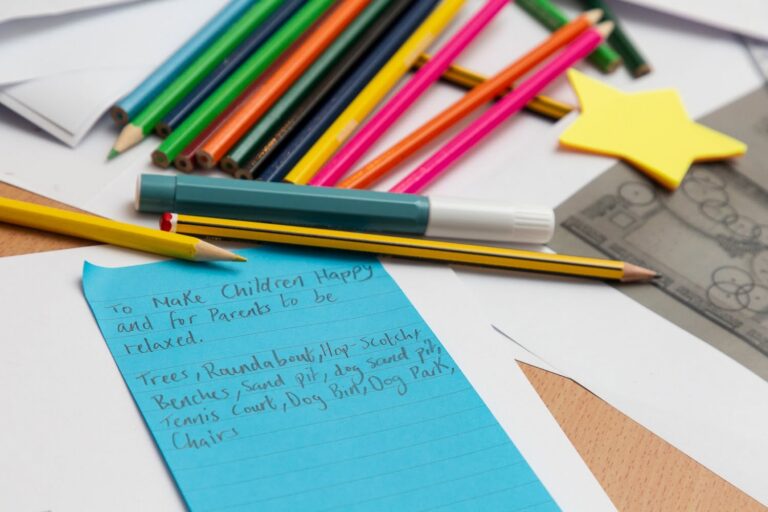 To Make Children Happy
and for Parents to be
relaxed.
Trees, Roundabout, Hop-Scotch,
Benches, Sand pit, dog sand pit,
Tennis Court, Dog Bin, Dog Park,
Chairs